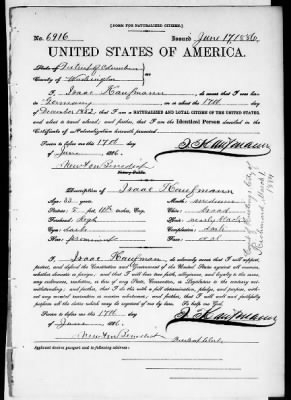 [FORM FOR NATURALIZED CITIZEN.]
No. 6916 Issued June 17 1886.
UNITED STATES OF AMERICA.
State of District of Columbia
County of Washington } ss:
I, Isaac Kaufmann, do swear that I was born in
Germany on or about the 17th day
of December 1852; that I am a NATURALIZED AND LOYAL CITIZEN OF THE UNITED STATES,
and about to travel abroad; and further, that I am the Identical Person described in the
Certificate of Naturalization herewith presented.
Sworn to before me this 17th day
of June 1886.
I. Kaufmann
Newton Benedict
Notary Public.
Description of Isaac Kaufmann
Age: 33 years. Mouth: medium
Stature: 5 feet inches, Eng. Chin: broad
Forehead: high Hair: nearly black
Eyes: dark Complexion: dark
Nose: prominent Face: oval
I, Isaac Kaufman, do solemnly swear that I will support,
protect, and defend the Constitution and Government of the United States against all enemies,
whether domestic or foreign; and that I will bear true faith, allegiance, and loyalty to the same,
any ordinance, resolution, or law of any State, Convention, or Legislature to the contrary not-
withstanding; and further, that I do this with a full determination, pledge, and purpose, with-
out any mental reservation or evasion whatsoever; and further, that I will well and faithfully
perform all the duties which may be required of me by law. So help me God.
Sworn to before me this 17th day
of June 1886.
I. Kaufmann
Newton Benedict
Applicant desires passport sent to following address: